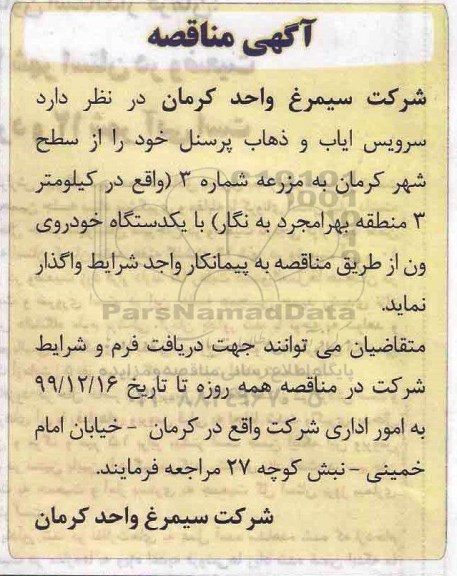 آگهی مناقصه
شرکت سیمرغ واحد کرمان در نظر دارد
سرویس ایاب و ذهاب پرسنل خود را از سطح
شهر کرمان به مزرعه شماره ۳ (واقع در کیلومتر
۳ منطقه بهرامجرد به نگار) با یکدستگاه خودروی
ون از طریق مناقصه به پیمانکار واجد شرایط واگذار
نماید.
ParsNamadData
متقاضیان می توانند جهت دریافت فرم و شرایط
شرکت در مناقصه همه روزه تا تاریخ ۹۹/۱۲/۱۶
به امور اداری شرکت واقع در کرمان - خیابان امام
خمینی - نبش کوچه ۲۷ مراجعه فرمایند.
شرکت سیمرغ واحد کرمان